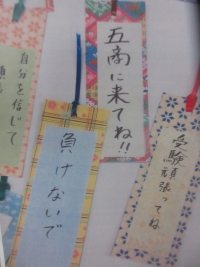 五商に来てね!!
受験頑張ってね
負けないで
自分を信じて